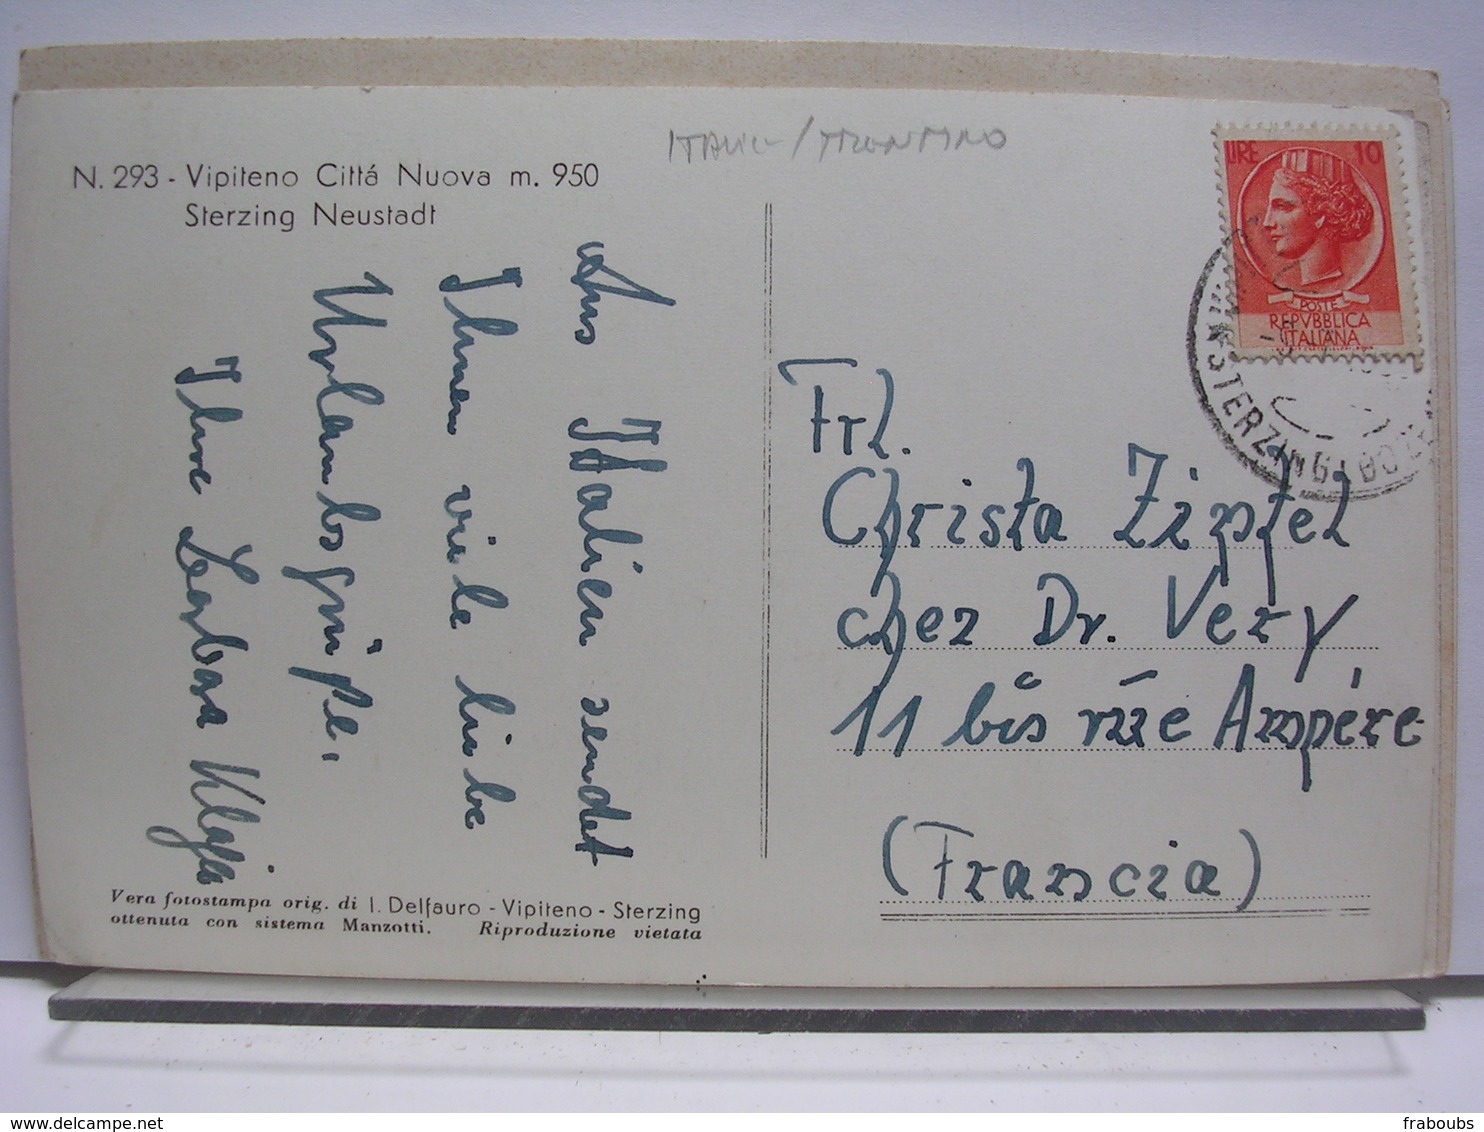 ITALIE / TRENTINO
N. 293 - Vipiteno Cittá Nuova m. 950
Sterzing Neustadt
Aus Italien sendet
Ihnen viele liebe
Urlaubsgrüße,
Ihre Barbara
Vera fotostampa orig. di I. Delfauro - Vipiteno - Sterzing
ottenuta con sistema Manzotti. Riproduzione vietata
LIRE 10
POSTE
REPVBBLICA
ITALIANA
STERZING
Frl.
Christa Zipfel
chez Dr. Very
11 bis rue Ampère
(Francia)
fraboubs